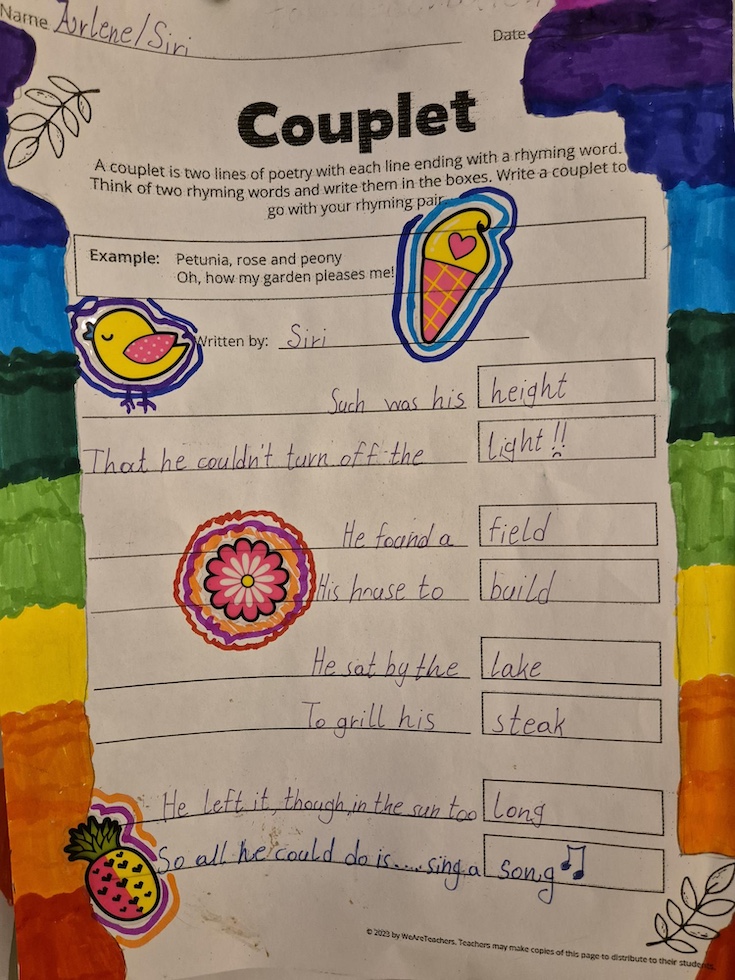 Name Arlene/Siri
Date
Couplet
A couplet is two lines of poetry with each line ending with a rhyming word.
Think of two rhyming words and write them in the boxes. Write a couplet to
go with your rhyming pair.
Example: Petunia, rose and peony
Oh, how my garden pleases me!
Written by: Siri
Such was his height
That he couldn't turn off the light!!
He found a field
His house to build
He sat by the lake
To grill his steak
He left it, though, in the sun too long
So all he could do is.... sing a song
© 2023 by WeAreTeachers. Teachers may make copies of this page to distribute to their students.